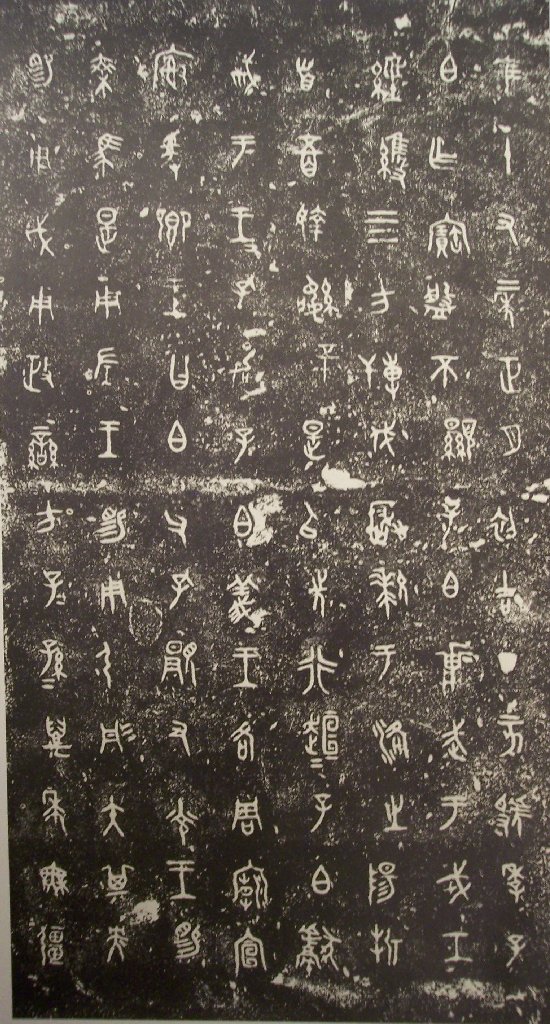 隹十又二年正月初吉丁亥虢季子
白乍寶盤不顯子白壯武于戎工
經維四方搏伐玁狁于洛之陽折
首五百執訊五十是以先行趄趄子白獻
馘于王王孔加子白義王各周廟宣
榭爰鄉王曰白父孔顯又光王睗
乘馬是用左王睗用弓彤矢其央
睗用戉用政蠻方子子孫孫萬年無疆